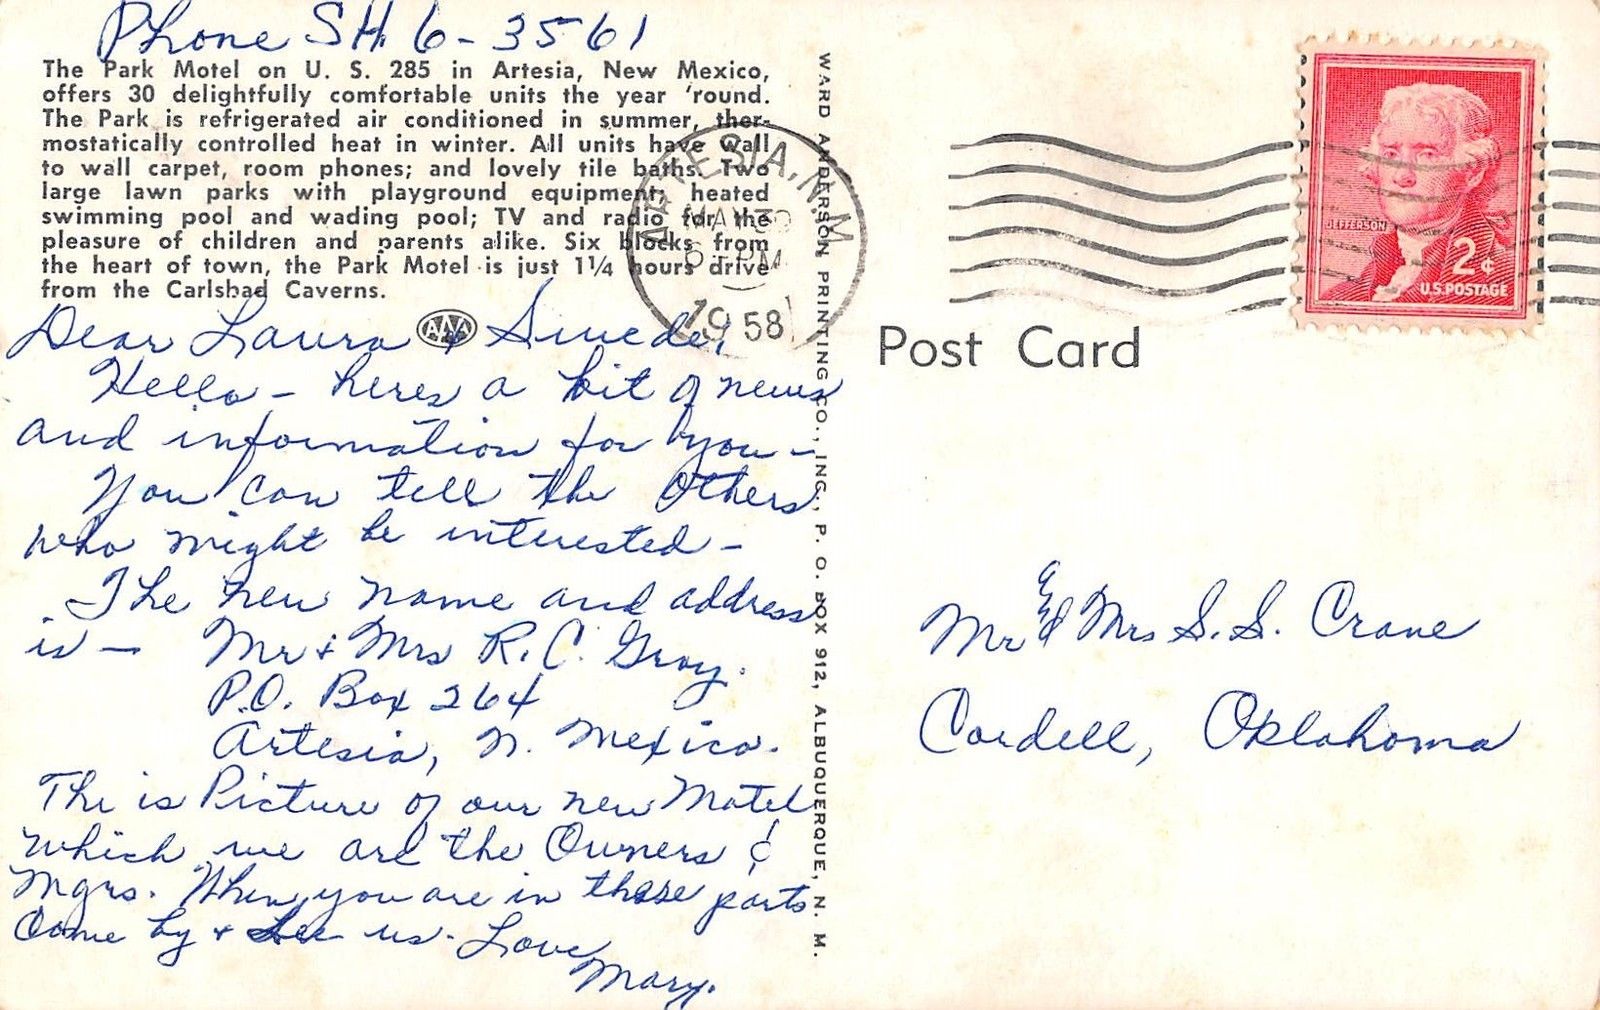 Phone SH. 6-3561
The Park Motel on U. S. 285 in Artesia, New Mexico,
offers 30 delightfully comfortable units the year 'round.
The Park is refrigerated air conditioned in summer, ther-
mostatically controlled heat in winter. All units have wall
to wall carpet, room phones; and lovely tile baths. Two
large lawn parks with playground equipment; heated
swimming pool and wading pool; TV and radio for the
pleasure of children and parents alike. Six blocks from
the heart of town, the Park Motel is just 1¼ hours drive
from the Carlsbad Caverns.
AAA
Dear Laura & Swede,
Hello - heres a bit of news
and information for you -
You can tell the others
who might be interested -
The new name and address
is - Mr & Mrs R. C. Gray.
P.O. Box 264
Artesia, N. Mexico.
The is Picture of our new Motel
which we are the Owners &
Mgrs. When you are in these parts
Come by & see us. Love
Mary.
WARD ANDERSON PRINTING CO., INC., P. O. BOX 912, ALBUQUERQUE, N. M.
ARTESIA, N. M.
MAY 30
6 PM
1958
JEFFERSON
2¢
U.S. POSTAGE
Post Card
Mr and Mrs S. S. Crane
Cordell, Oklahoma